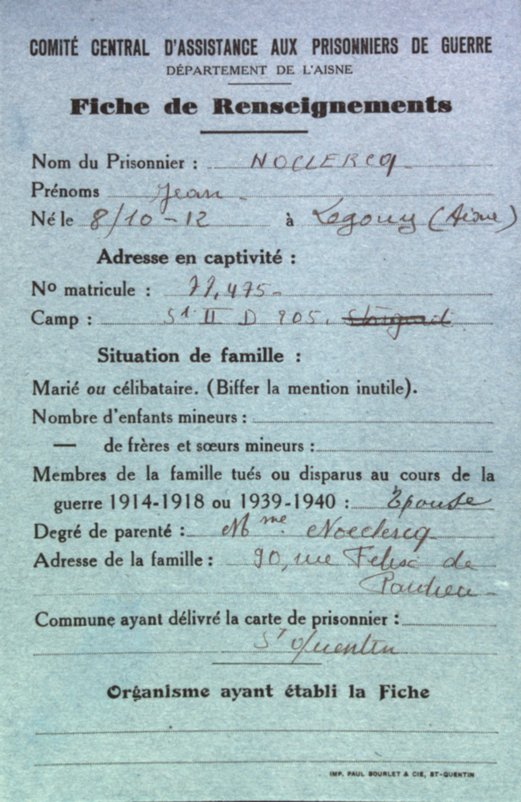 COMITÉ CENTRAL D'ASSISTANCE AUX PRISONNIERS DE GUERRE
DÉPARTEMENT DE L'AISNE
Fiche de Renseignements
Nom du Prisonnier : NOCLERCQ
Prénoms Jean
Né le 8/10-12 à (Aisne)
Adresse en captivité :
No matricule :
Camp : St II D 205.
Situation de famille :
Marié ou célibataire. (Biffer la mention inutile).
Nombre d'enfants mineurs :
— de frères et sœurs mineurs :
Membres de la famille tués ou disparus au cours de la
guerre 1914-1918 ou 1939-1940 : Epouse
Degré de parenté : Mme Noeclercq
Adresse de la famille : 90, rue Félix de
Commune ayant délivré la carte de prisonnier :
St Quentin
Organisme ayant établi la Fiche
IMP. PAUL BOURLET & CIE, ST-QUENTIN